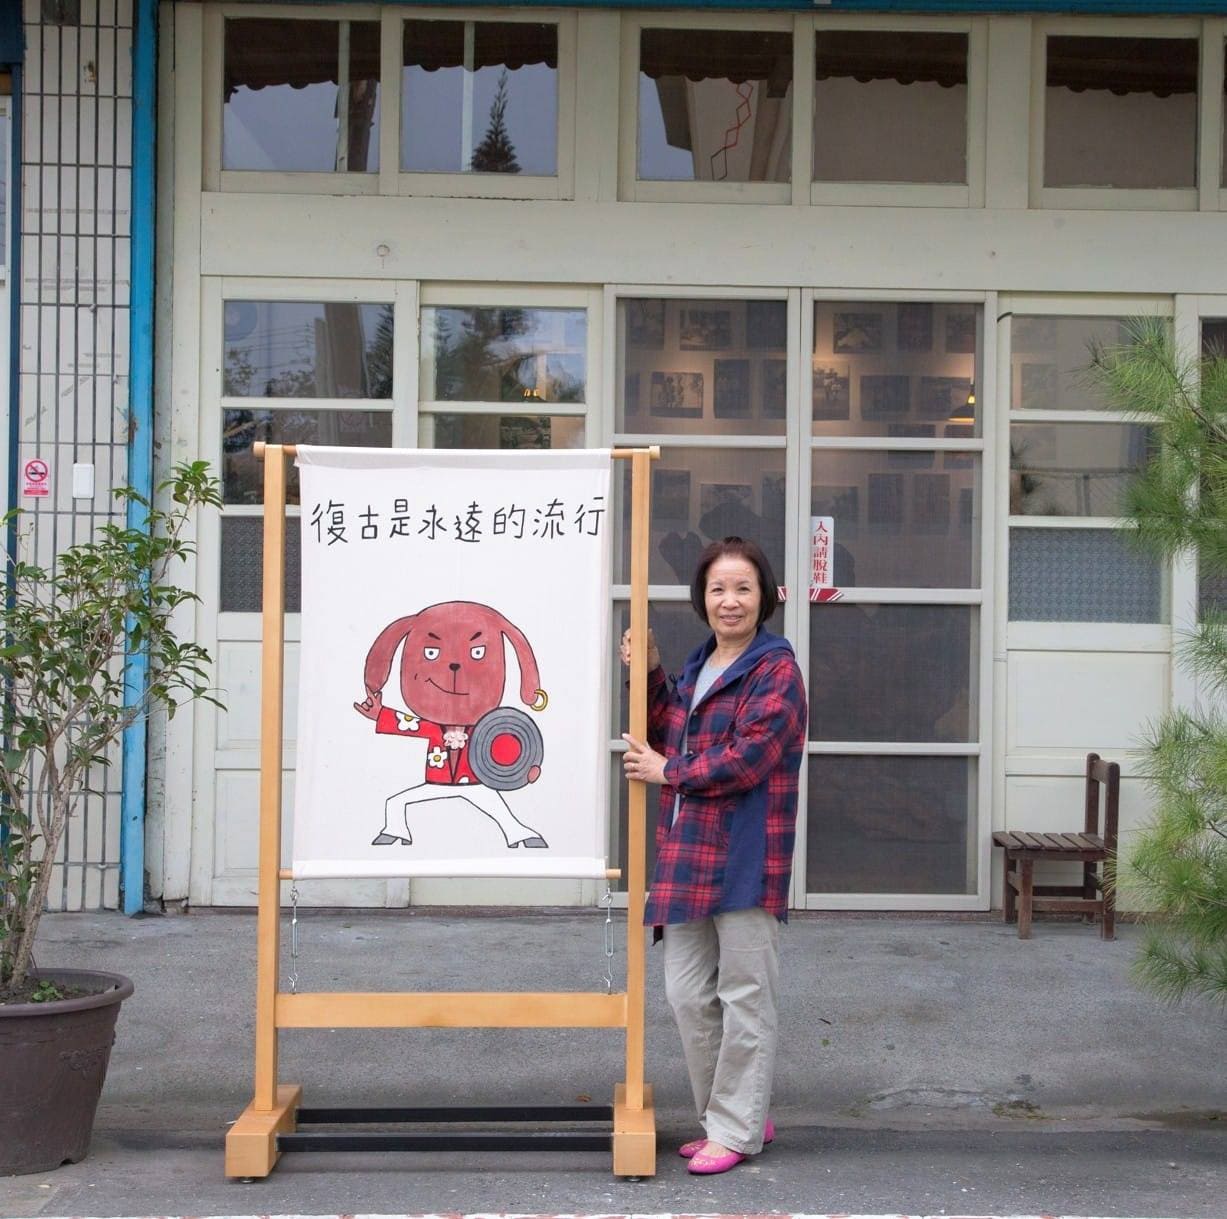 復古是永遠的流行
入內請脫鞋